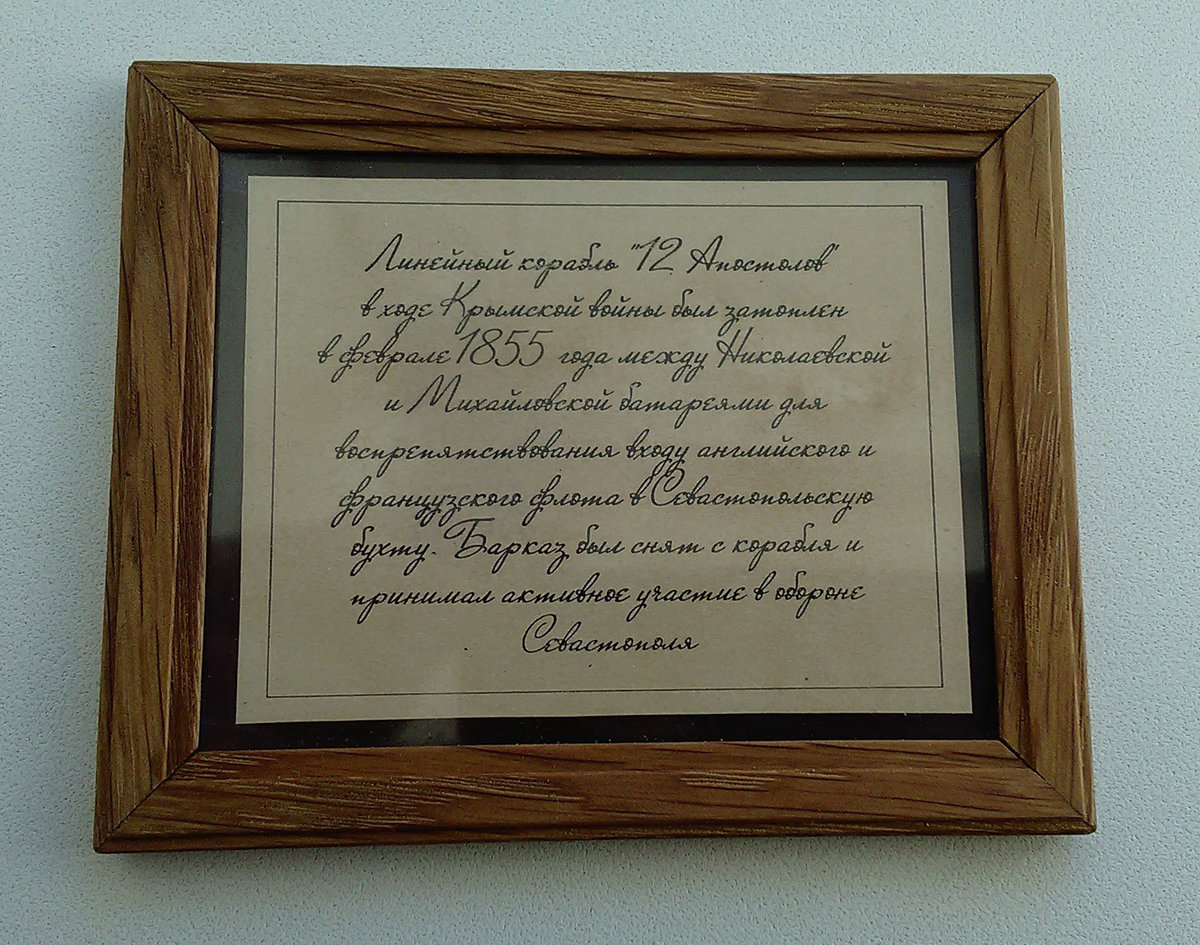 Линейный корабль "12 Апостолов"
в ходе Крымской войны был затоплен
в феврале 1855 года между Николаевской
и Михайловской батареями для
воспрепятствования входу английского и
французского флота в Севастопольскую
бухту. Барказ был снят с корабля и
принимал активное участие в обороне
Севастополя